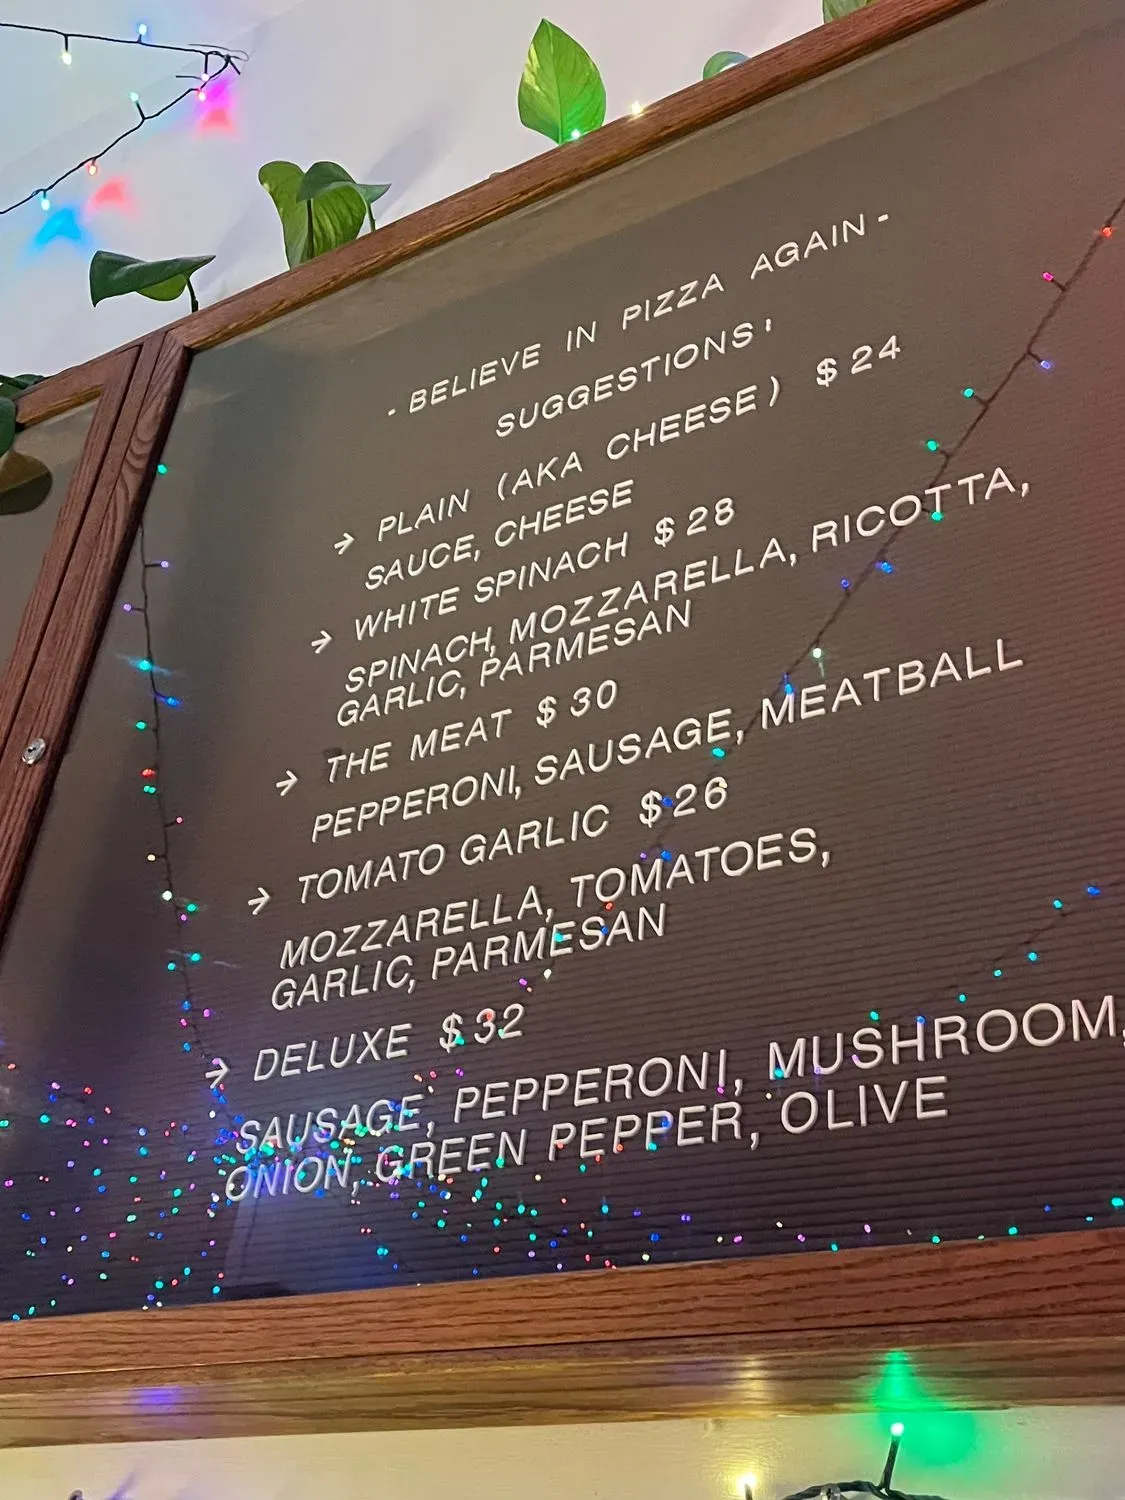 - BELIEVE IN PIZZA AGAIN -
SUGGESTIONS:
→ PLAIN (AKA CHEESE) $24
SAUCE, CHEESE
→ WHITE SPINACH $28
SPINACH, MOZZARELLA, RICOTTA,
GARLIC, PARMESAN
→ THE MEAT $30
PEPPERONI, SAUSAGE, MEATBALL
→ TOMATO GARLIC $26
MOZZARELLA, TOMATOES,
GARLIC, PARMESAN
→ DELUXE $32
SAUSAGE, PEPPERONI, MUSHROOM,
ONION, GREEN PEPPER, OLIVE